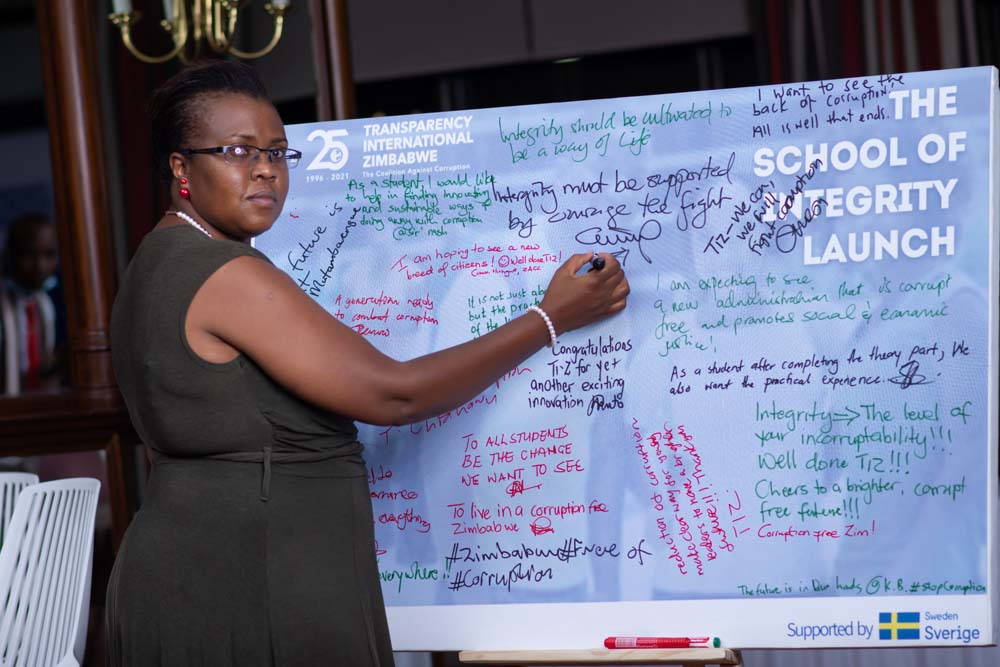 25
1996 - 2021
TRANSPARENCY
INTERNATIONAL
ZIMBABWE
The Coalition Against Corruption
THE
SCHOOL OF
INTEGRITY
LAUNCH
Integrity should be cultivated to
be a way of Life
I want to see the
back of corruption,
All is well that ends.
As a student I would like
to help in finding innovative
and sustainable ways of
doing away with corruption
Integrity must be supported
by courage the fight
TI-Z - We can,
we will
Fight corruption
future is
I am hoping to see a new
breed of citizens! Well done TIZ!
A generation ready
to combat corruption
It is not just about
but the
of the
I am expecting to see
a new administration that is corrupt
free and promotes social & economic
justice!
Congratulations
TI-Z for yet
another exciting
innovation
As a student after completing the theory part, We
also want the practical experience.
TO ALL STUDENTS
BE THE CHANGE
WE WANT TO SEE
Integrity => The level of
your incorruptability!!!
Well done TIZ!!!
Cheers to a brighter, corrupt
free future!!!
Corruption free Zim!
To live in a corruption free
Zimbabwe
reduction of corruption
TIZ
everything
everywhere!!
#Zimbabwe#Free of
#Corruption
The future is in Our hands @K.B. #stopCorruption
Supported by
Sweden
Sverige